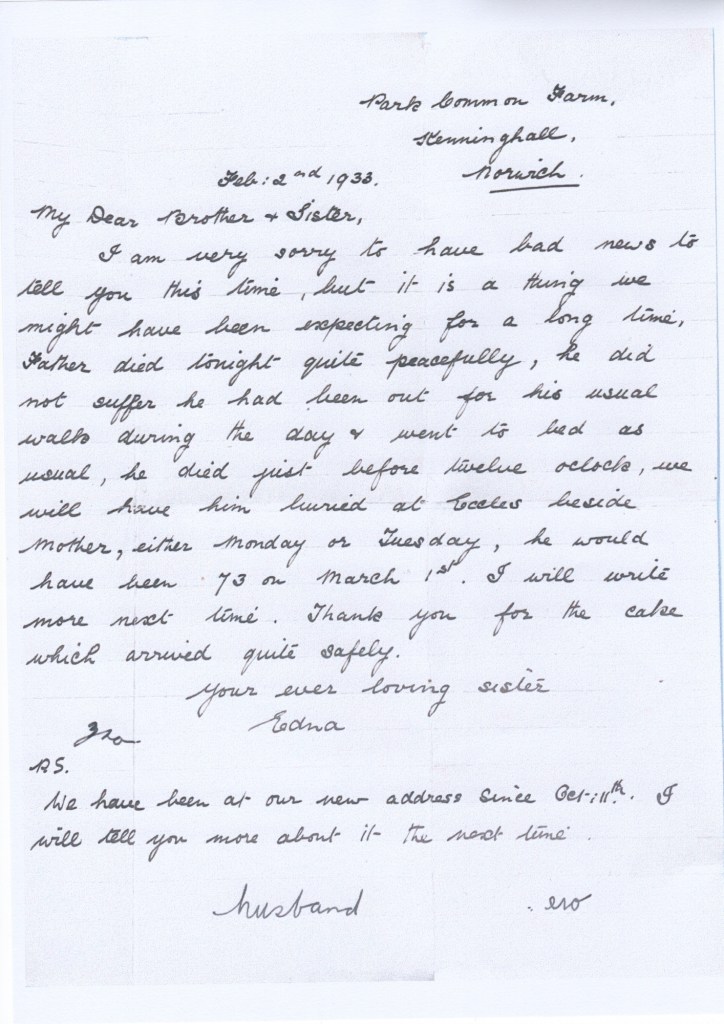 Park Common Farm,
Kenninghall,
Feb: 2nd 1933. Norwich.
My Dear Brother & Sister,
I am very sorry to have bad news to
tell you this time, but it is a thing we
might have been expecting for a long time,
Father died tonight quite peacefully, he did
not suffer he had been out for his usual
walk during the day & went to bed as
usual, he died just before twelve oclock, we
will have him buried at Eccles beside
Mother, either Monday or Tuesday, he would
have been 73 on March 1st. I will write
more next time. Thank you for the cake
which arrived quite safely.
Your ever loving sister
Edna
P.S.
We have been at our new address since Oct: 11th. I
will tell you more about it the next time.
husband